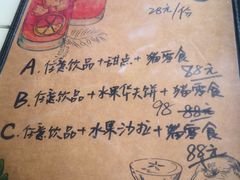 28元/份
A. 任意饮品+甜点+猫零食
88元
B. 任意饮品+水果华夫饼+猫零食
98 88元
C. 任意饮品+水果沙拉+猫零食
88元